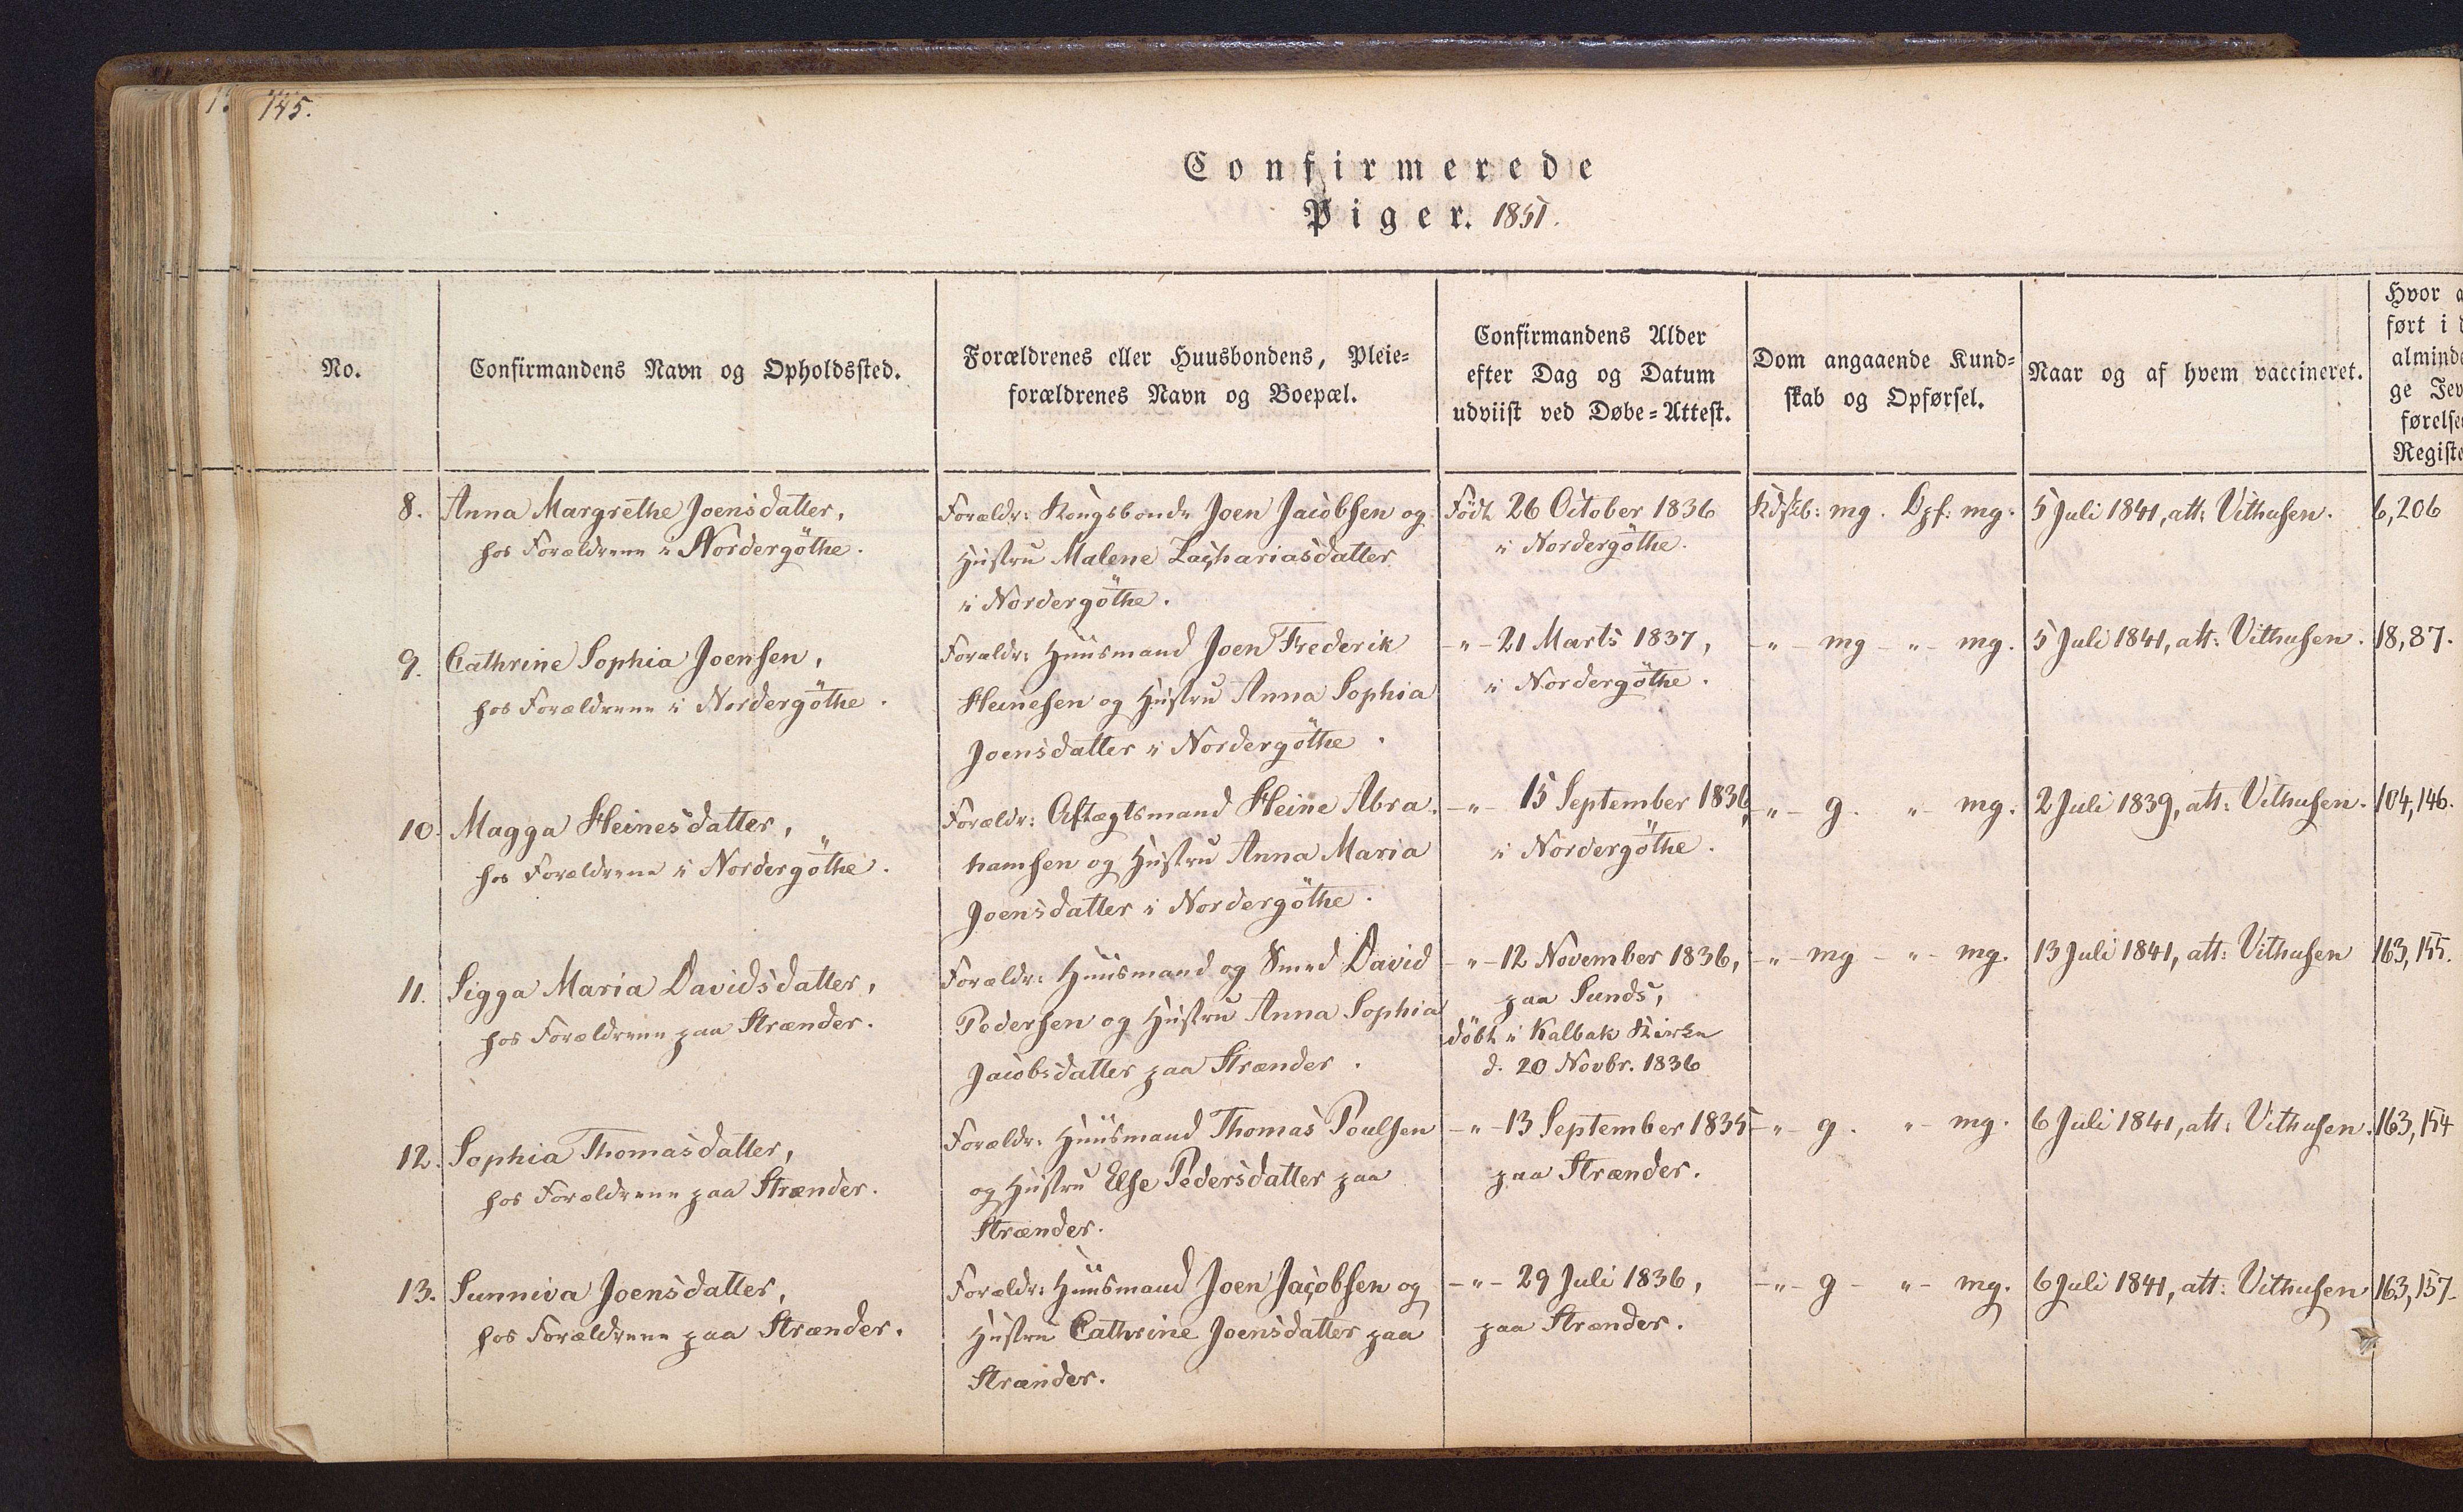 145.
Confirmerede
Piger. 1851.
No.
Confirmandens Navn og Opholdssted.
Forældrenes eller Huusbondens, Pleie=
forældrenes Navn og Boepæl.
Confirmandens Alder
efter Dag og Datum
udviist ved Døbe=Attest.
Dom angaaende Kund=
skab og Opførsel.
Naar og af hvem vaccineret.
Hvor a
ført i d
alminde
ge Jev
førelse
Registe
8. Anna Margrethe Joensdatter,
hos Forældrene i Nordergöthe.
Forældr: Kongsbonde Joen Jacobsen og
Hustru Malene Zachariasdatter
i Nordergöthe.
Födt 26 October 1836
i Nordergöthe.
Kdskb: mg. Opf: mg.
5 Juli 1841, att: Vithusen.
6,206
9. Cathrine Sophia Joensen,
hos Forældrene i Nordergöthe.
Forældr: Huusmand Joen Frederik
Heinesen og Hustru Anna Sophia
Joensdatter i Nordergöthe.
-"- 21 Marts 1837,
i Nordergöthe.
-"- mg -"- mg.
5 Juli 1841, att: Vithusen.
18,87.
10. Magga Heinesdatter,
hos Forældrene i Nordergöthe.
Forældr: Aftægtsmand Heine Abra
hamsen og Hustru Anna Maria
Joensdatter i Nordergöthe.
-"- 15 September 1836,
i Nordergöthe.
-"- g. "- mg.
2 Juli 1839, att: Vithusen.
104,146.
11. Sigga Maria Davidsdatter,
hos Forældrene paa Strænder.
Forældr: Huusmand og Smed David
Pedersen og Hustru Anna Sophia
Jacobsdatter paa Strænder.
-"- 12 November 1836,
paa Sunds,
döbt i Kalbak Kirke
d. 20 Novbr. 1836
-"- mg -"- mg.
13 Juli 1841, att: Vithusen
163,155.
12. Sophia Thomasdatter,
hos Forældrene paa Strænder.
Forældr: Huusmand Thomas Poulsen
og Hustru Else Pedersdatter paa
Strænder.
-"- 13 September 1835
paa Strænder.
-"- g. "- mg.
6 Juli 1841, att: Vithusen.
163,154
13. Sunneva Joensdatter,
hos Forældrene paa Strænder.
Forældr: Huusmand Joen Jacobsen og
Hustru Cathrine Joensdatter paa
Strænder.
-"- 29 Juli 1836,
paa Strænder.
-"- g - "- mg.
6 Juli 1841, att: Vithusen
163,157.